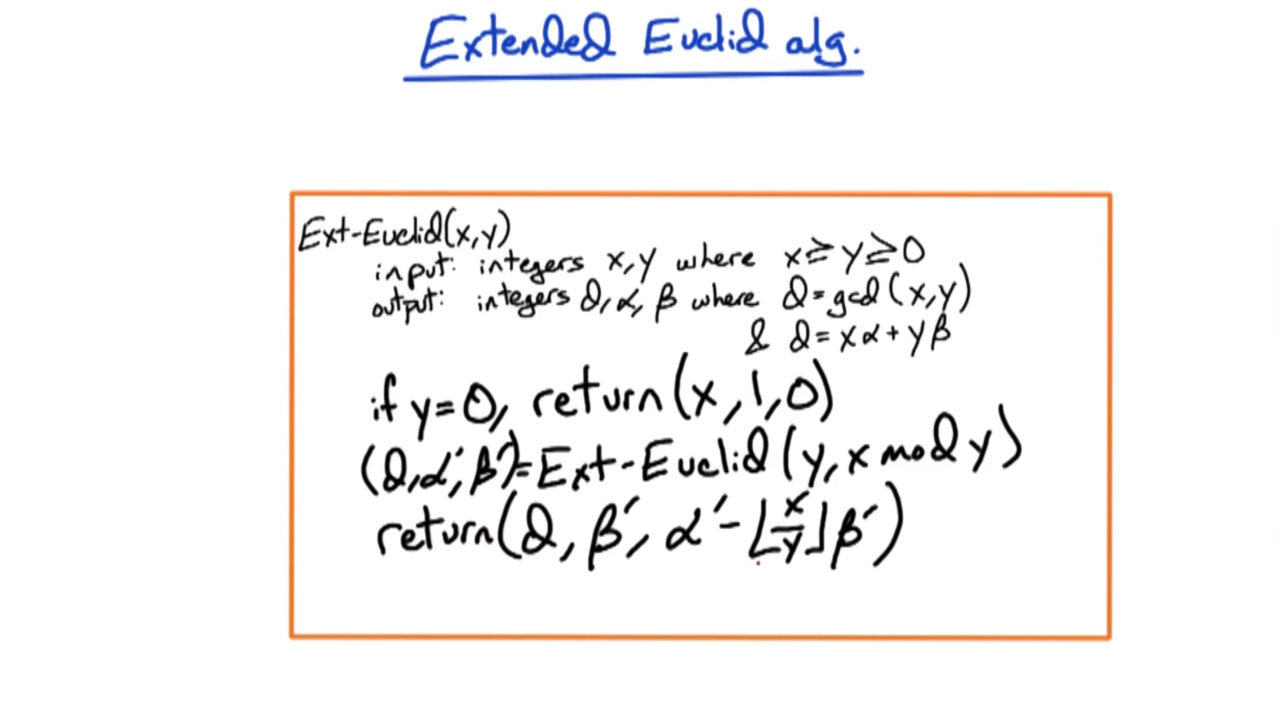 Extended Euclid alg.
Ext-Euclid(x,y)
input: integers x,y where x≥y≥0
output: integers d,α,β where d=gcd(x,y)
& d=xα+yβ
if y=0, return(x,1,0)
(d,α′,β′)=Ext-Euclid(y,x mod y)
return(d,β′,α′-⌊x/y⌋β′)